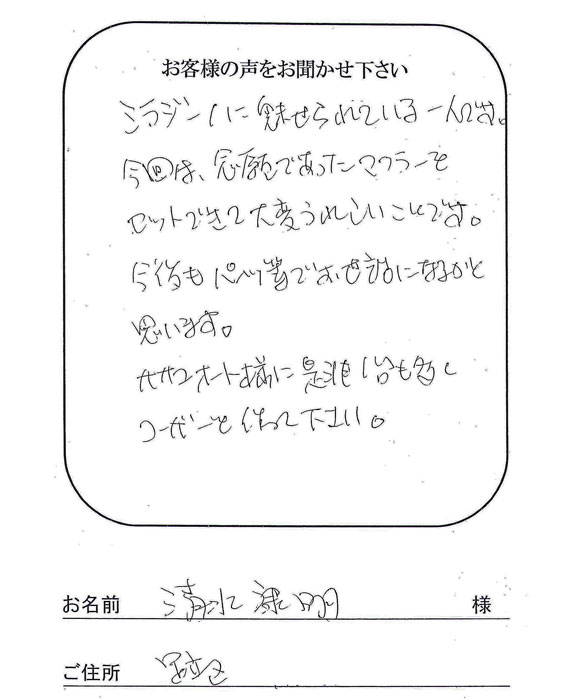 お客様の声をお聞かせ下さい
ミラジーノに魅せられている一人です。
今回は、念願であったマフラーを
セットできて大変うれしいことです。
今後もパーツ等でお世話になるかと
思います。
ササオート様に是非1台も多く
コーザーを作って下さい。
お名前 清水 明 様
ご住所 足立区